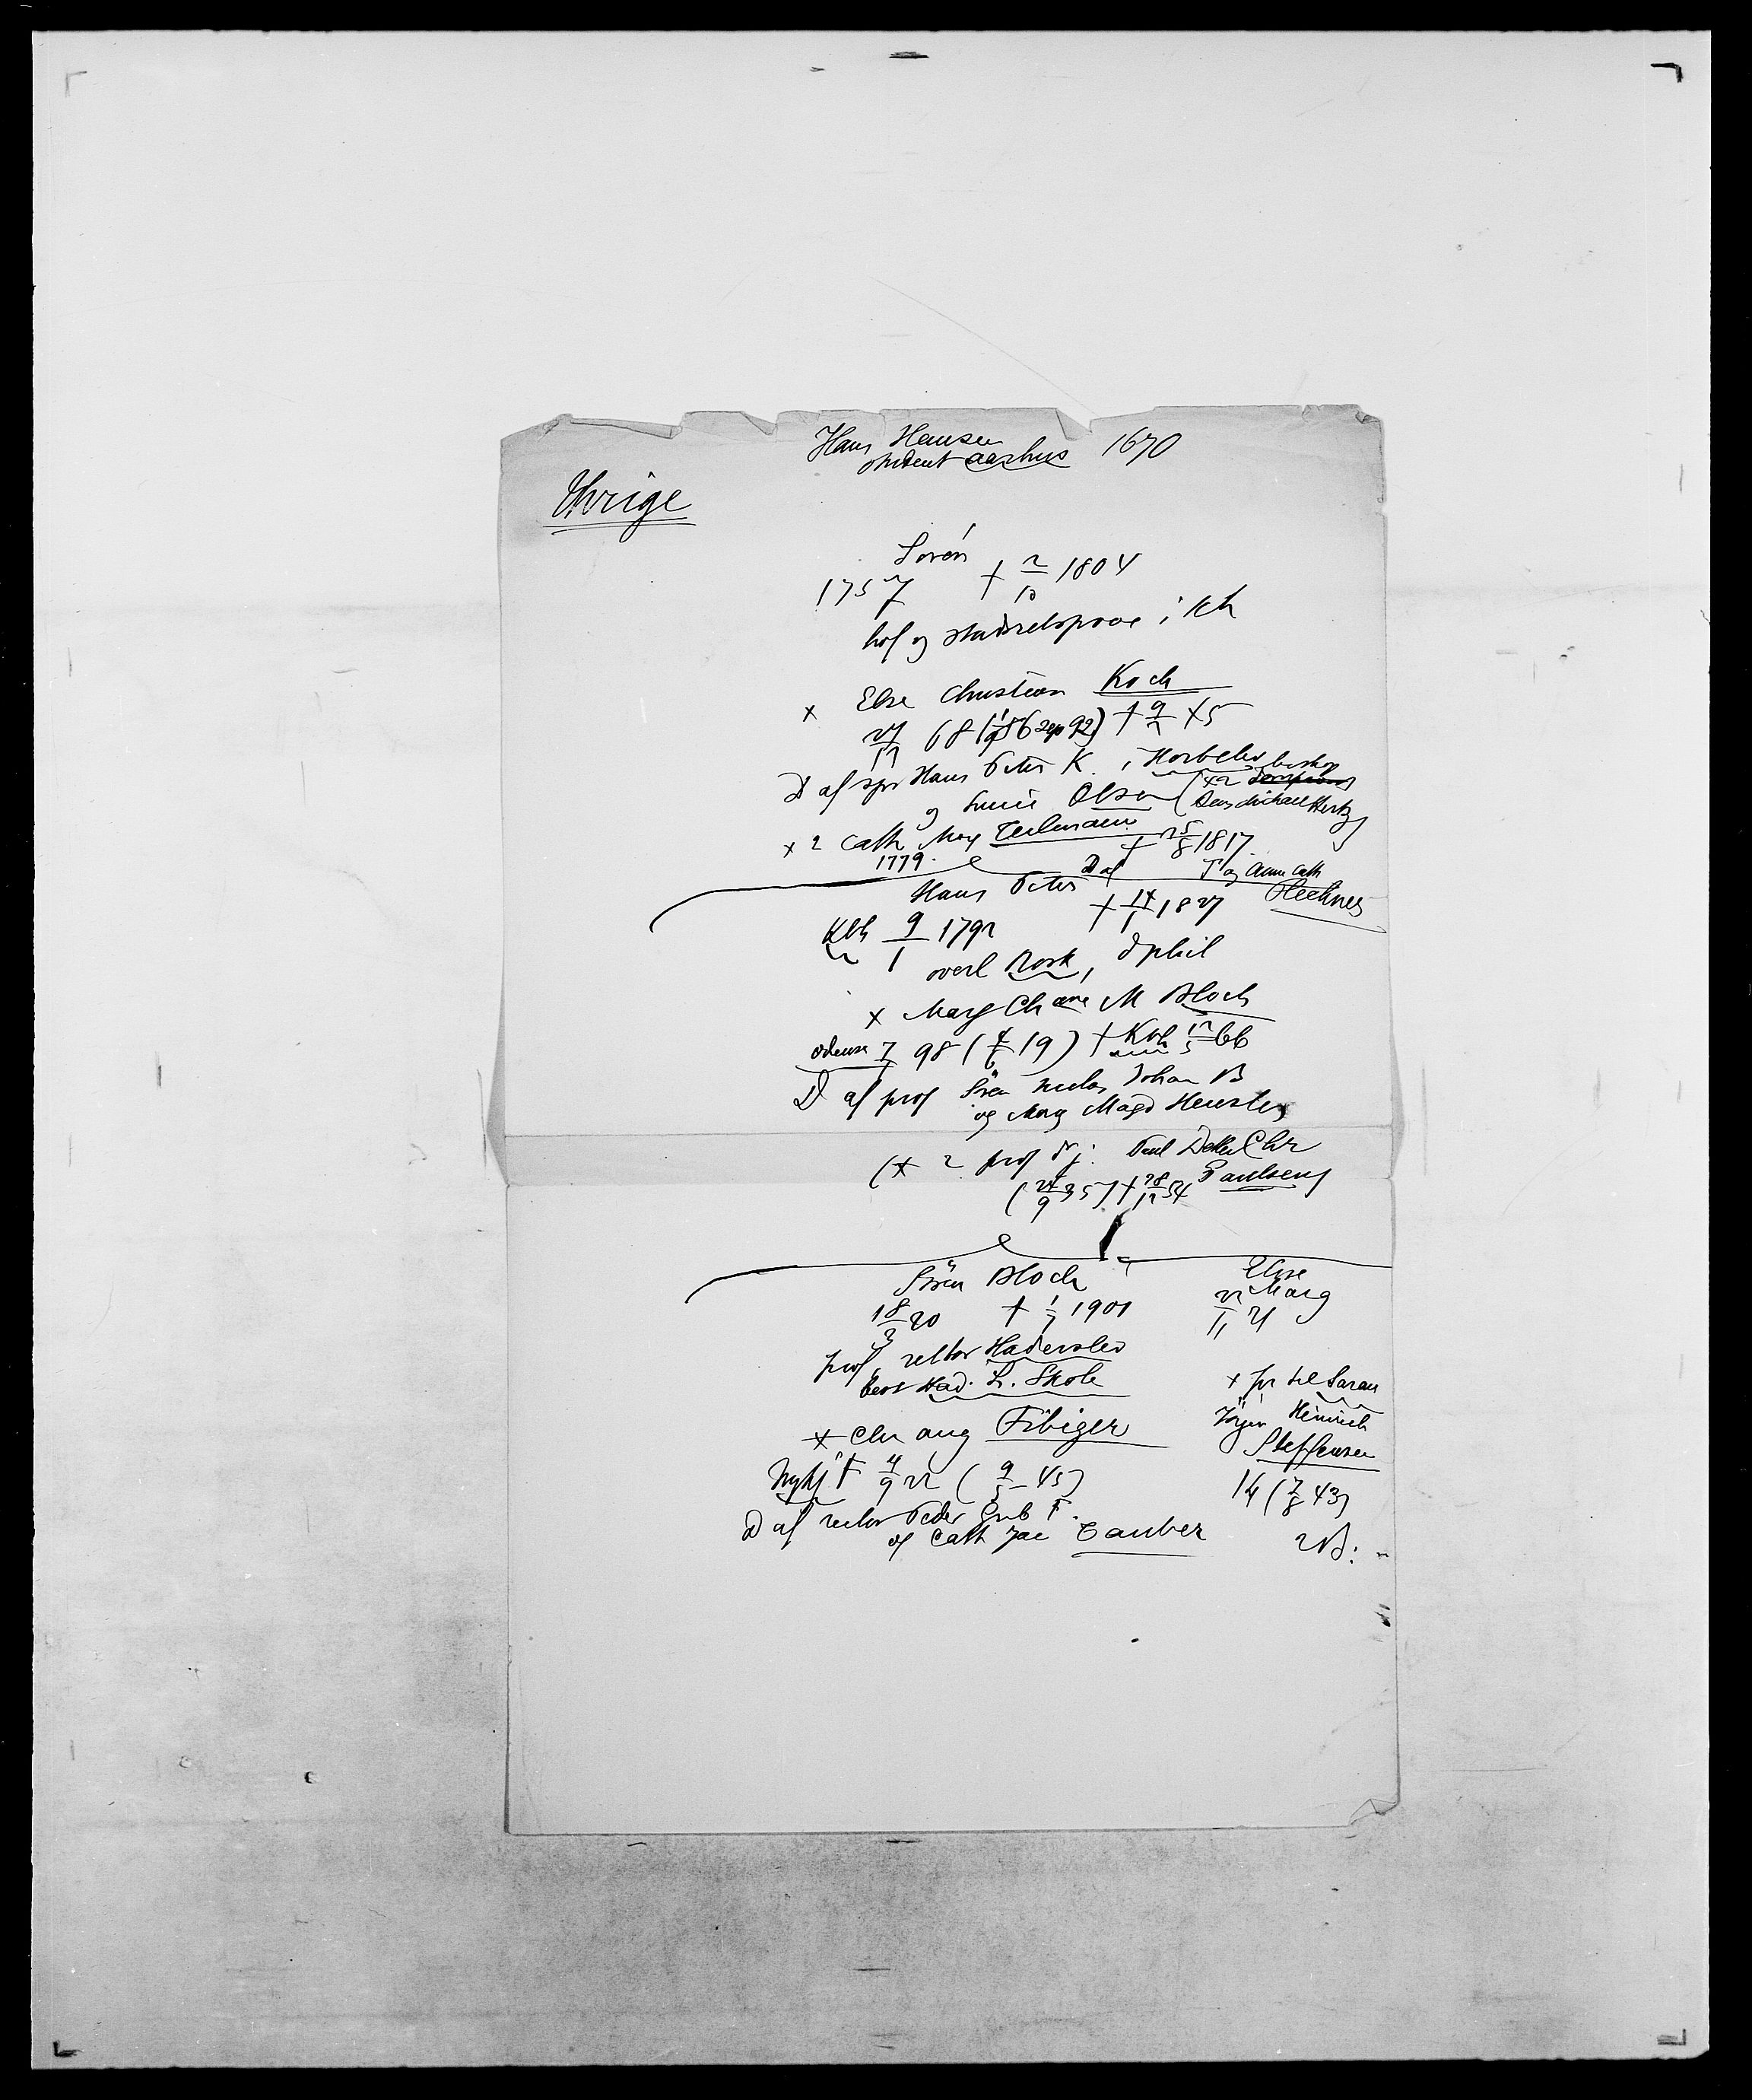 Hans Hansen
student Aarhus 1670
Thrige
Sören
1757 † 2/10 1804
hof og stadsretsproc i Kh
× Else Christian Koch
27/12 68 (1/9 86 sep 92) † 9/2 45
D af spr Hans Peter K. i Horbelev
og Lucie Olsen (×2 biskop
Jens Michael Hertz)
× 2 Cath Marg Teilmann † 25/8 1817
1779. D af T og Anna Cath
Fleckner
Hans Peter
Kbh 9/1 1792 † 14/1 1827
overl Rosk, d phil
× Marg Chane M Bloch
Odense 7 98 (4/6 19) † Kbh 12/5 66
D af prof Sören Niclas Johan B
og Marg Magd Henster
(× 2 prof dr j. Paul Detlev Chr
Paulsen)
(24/9 35) † 28/12 54
Sören Bloch
18/3 20 † 1/7 1901
prof, rektor Haderslev
best Had. L. Skole
× Chr Aug Fibiger
Nykj F 4/9 22 (9/5 45)
D af rector Peder Grib F.
og Cath Jac Tauber
Else
Marg
22/11 21
× pr til Sarau
Jörgen Heinrich
Steffensen
14 (7/8 43)
2 B: